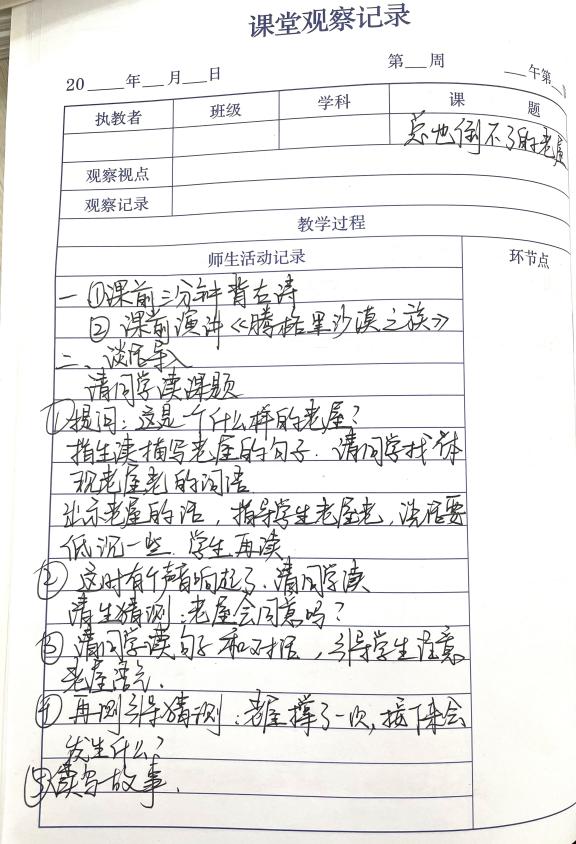 课堂观察记录
20 年 月 日 第 周 午第
执教者 班级 学科 课 题
总也倒不了的老屋
观察视点
观察记录
教学过程
师生活动记录 环节点
一 ①课前三分钟背古诗
② 课前演讲《腾格里沙漠之旅》
二、谈话导入
请同学读课题
①提问：这是一个什么样的老屋？
指生读描写老屋的句子．请同学找体
现老屋老的词语
出示老屋的话，指导学生老屋老，说话要
低沉一些．学生再读
② 这时有个声音响起了．请同学读
请生猜测：老屋会同意吗？
③ 请同学读句子和对话，引导学生注意
老屋语气．
④ 再次引导猜测：老屋撑了一次，接下来会
发生什么？
⑤续写故事．